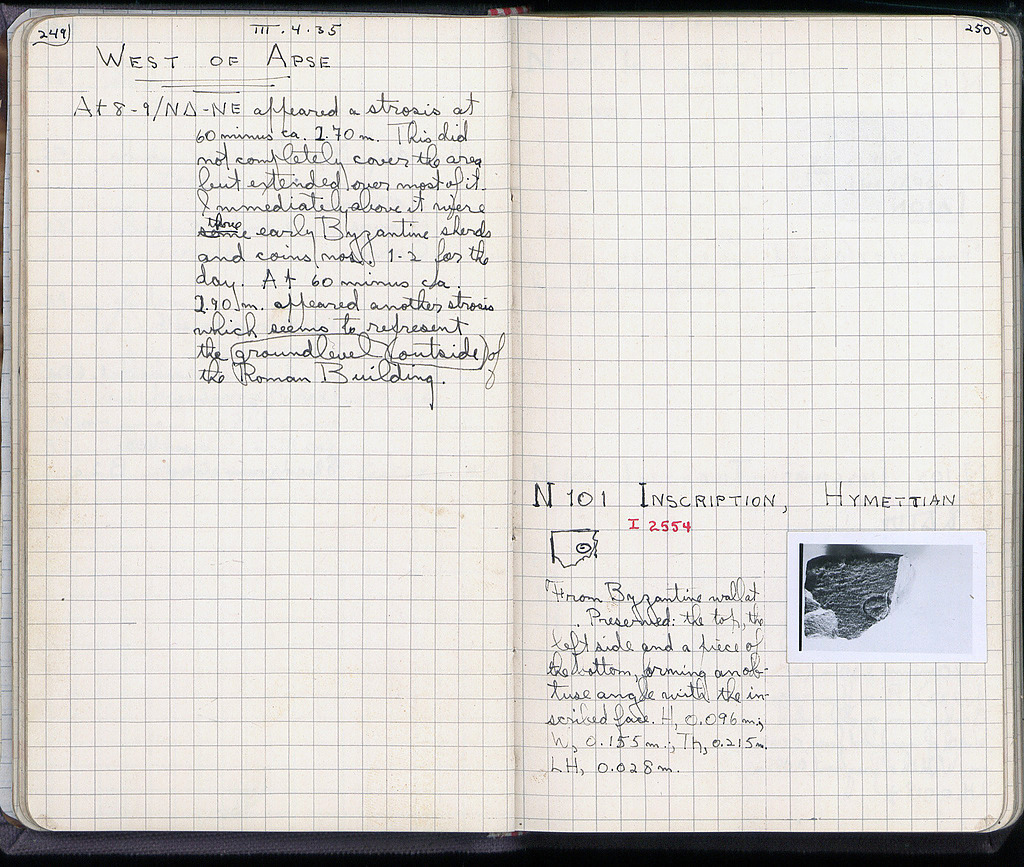 249
III.4.35
WEST OF APSE
At 8-9/ΝΔ-ΝΕ appeared a strosis at
60 minus ca. 1.70 m. This did
not completely cover the area
but extended over most of it.
Immediately above it were
three
some early Byzantine sherds
and coins nos. 1-2 for the
day. At 60 minus ca.
1.90 m. appeared another strosis
which seems to represent
the ground level (outside) of
the Roman Building.
250
N 101 INSCRIPTION, HYMETTIAN
I 2554
From Byzantine wall at
. Preserved: the top, the
left side and a piece of
the bottom, forming an ob-
tuse angle with the in-
scribed face. H, 0.096 m.;
W, 0.155 m.; Th, 0.215 m.
LH, 0.028 m.